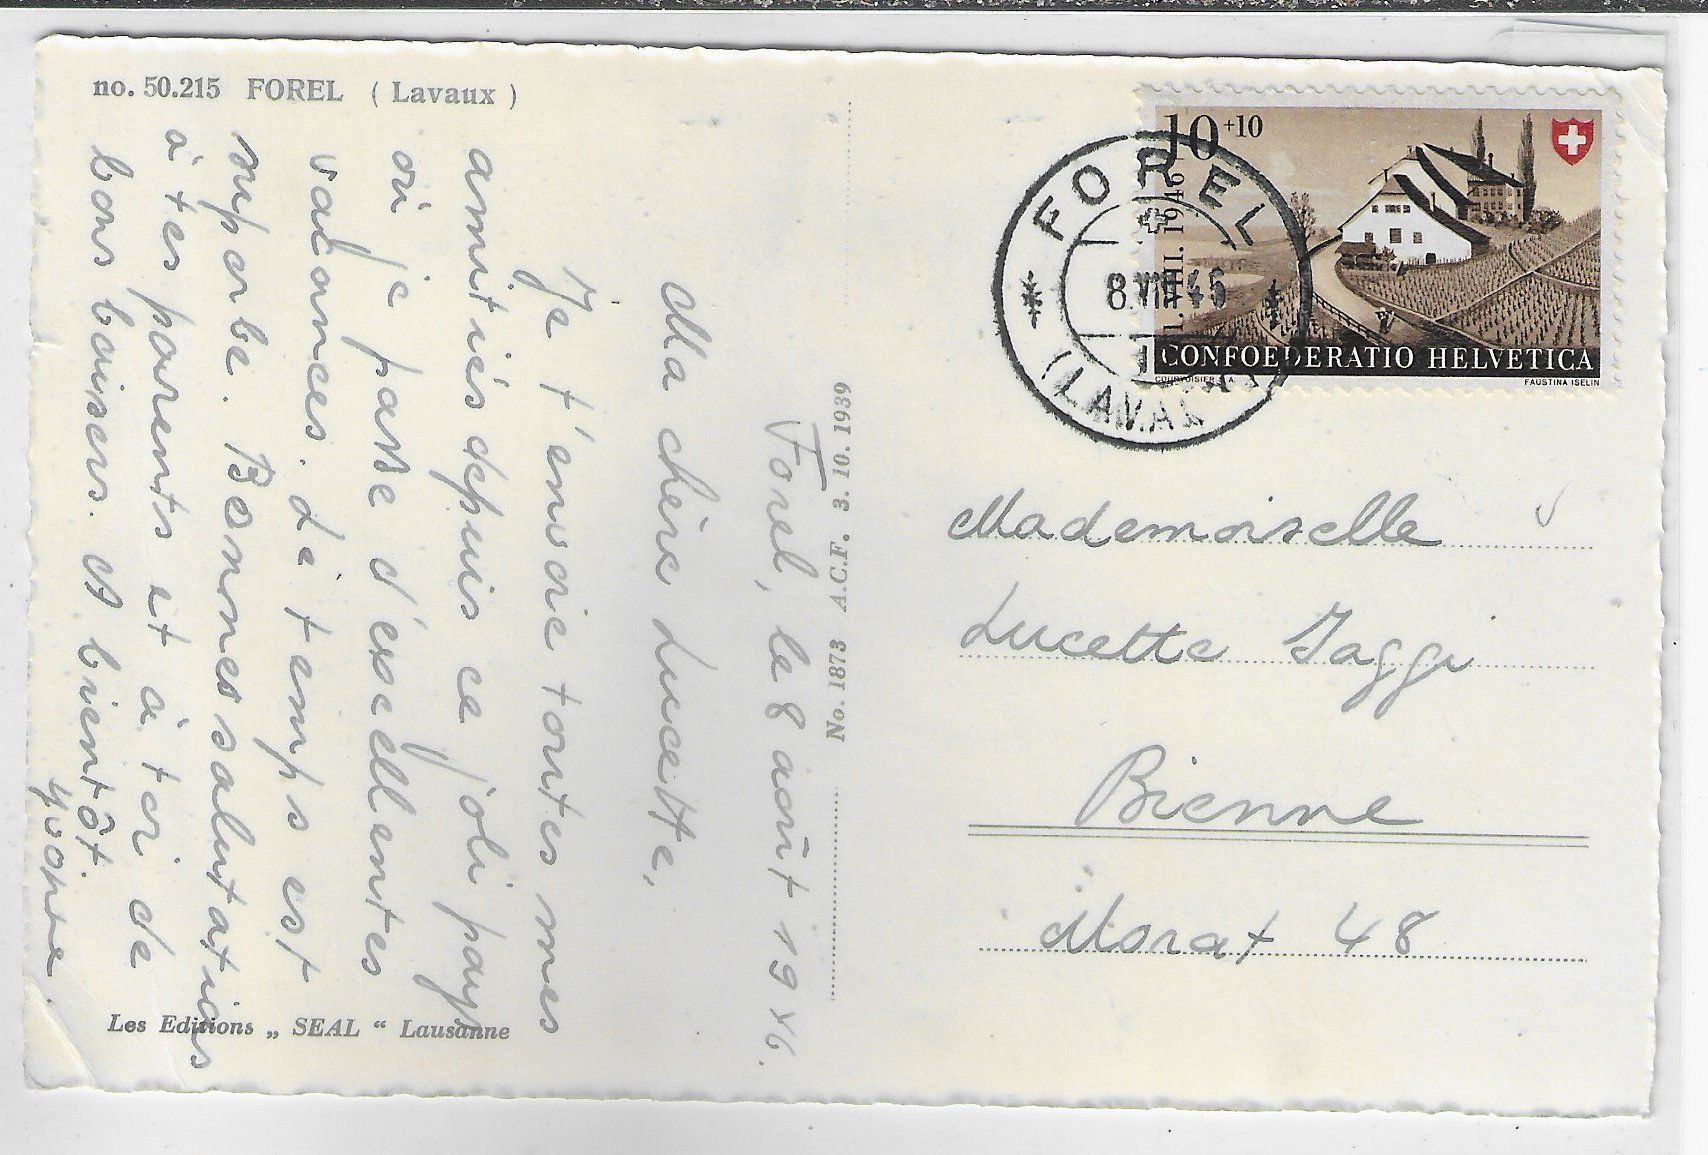 no. 50.215 FOREL (Lavaux)
Forel, le 8 août 1946.
Ma chère Lucette,
Je t'envoie toutes mes
amitiés depuis ce joli pays
où je passe d'excellentes
vacances. Le temps est
superbe. Bonnes salutations
à tes parents et à toi de
bons baisers. A bientôt.
Yvonne.
Les Editions „ SEAL “ Lausanne
No. 1873 A.C.F. 3. 10. 1939
10+10
1. VIII. 1946
CONFOEDERATIO HELVETICA
COURVOISIER S.A.
FAUSTINA ISELIN
FOREL
8.VIII.46
(LAVAUX)
Mademoiselle
Lucette Jaggi
Bienne
Morat 48